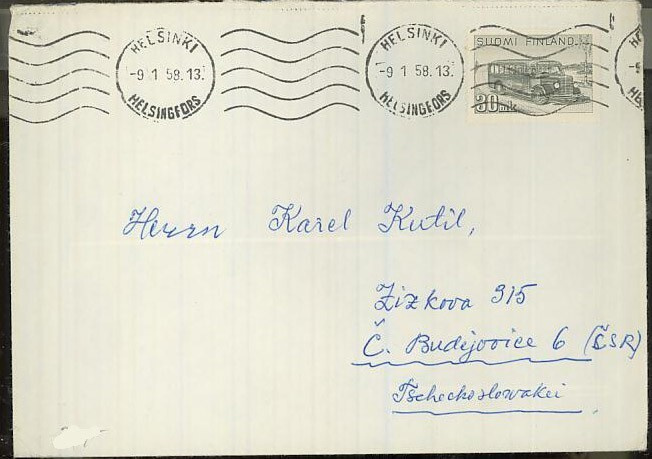 HELSINKI
-9.1 58.13.
HELSINGFORS
HELSINKI
-9.1 58.13.
HELSINGFORS
SUOMI FINLAND
30 mk
Herrn Karel Kutil,
Zizkova 315
Č. Budějovice 6 (ČSR)
Tschechoslowakei